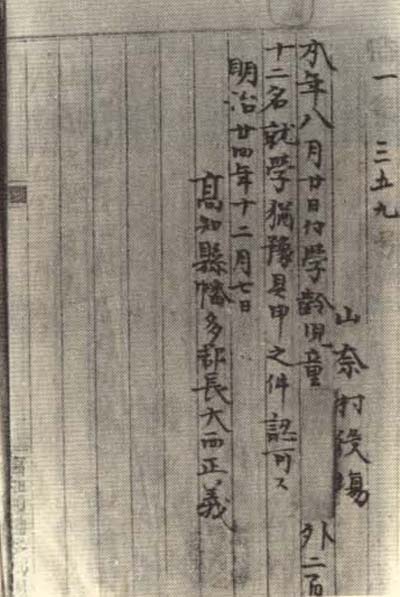 一 三五九
山奈村役場
本年八月廿日付学齢児童 外二百
十二名就学猶豫具申之件認可ス
明治廿四年十二月七日
高知縣幡多郡長大西正義